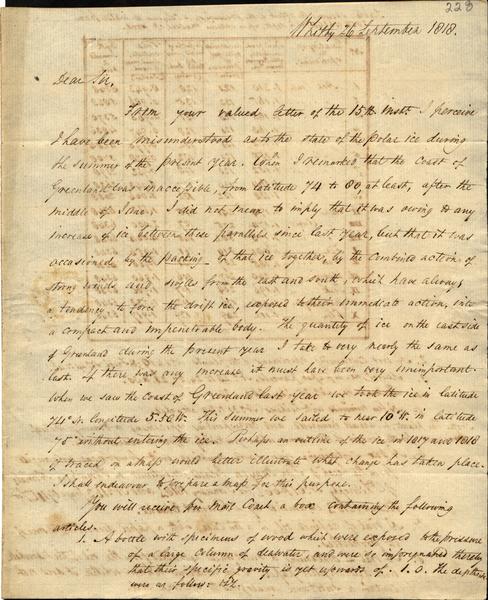 223
Whitby 26 September 1818.
Dear Sir,
From your valued letter of the 15th. Inst. I perceive
I have been misunderstood as to the state of the polar ice during
the summer of the present year. When I remarked that the coast of
Greenland was inaccessible, from latitude 74 to 80, at least, after the
middle of June I did not mean to imply that it was owing to any
increase of ice between these parallels since last year, but that it was
occasioned by the packing of that ice together, by the combined action of
strong winds and swells from the east and south, which have always
a tendency to force the drift ice, exposed to their immediate action, into
a compact and impenetrable body. The quantity of ice on the east side
of Greenland during the present year I take to be very nearly the same as
last. If there was any increase it must have been very unimportant.
When we saw the coast of Greenland last year we took the ice in latitude
74° N. longitude W. This summer we sailed to near 10° W. in latitude
75° without entering the ice. Perhaps an outline of the ice in 1817 and 1818
if traced on a map would better illustrate what change has taken place.
I shall endeavour to prepare a map for this purpose.
You will receive per Mail Coach a box containing the following
articles.
1. A bottle with specimens of wood which were exposed to the pressure
of a large column of seawater, and were so impregnated thereby
that their specific gravity is yet upwards of 1.0. The depths
were as follows